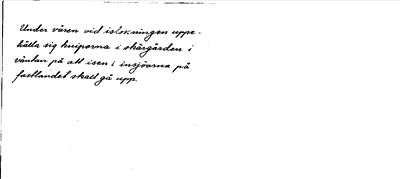 Under våren vid islokningen uppe-
hålla sig kniporna i skärgården i
väntan på att isen i insjöarna på
fastlandet skall gå upp.